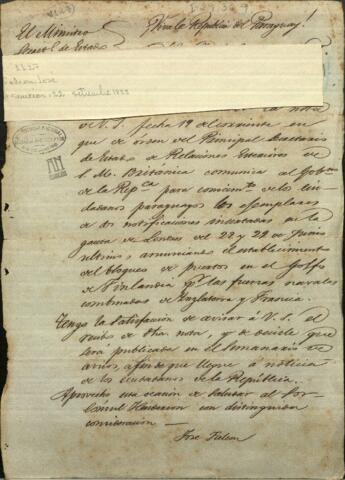 El Ministro
Viva la República del Paraguay!
Secret. de Estado
1127
Falcon, Jose
Asuncion, 22 setiembre 1855
la nota
de V. S. fecha 19 del corriente en
que de orden del Principal Secretario
de Estado de Relaciones Exteriores de
S. M. Britanica comunica al Gobno
de la Repca para conocimto de los ciu-
dadanos paraguayos los ejemplares
de dos notificaciones insertadas en la
gaceta de Londres del 22 y 22 de Junio
ultimo, anunciando el establecimiento
del bloqueo de puertos en el Golfo
de Finlandia pr las fuerzas navales
combinadas de Inglaterra y Francia.
Tengo la satisfaccion de avisar á V. S. el
recibo de dha nota, y de decirle que
será publicada en el Semanario de
avisos, a fin de que llegue á noticia
de los ciudadanos de la República.
Aprovecho esta ocasion de saludar al Sor
Cónsul Henderson con distinguida
consideracion —
Jose Falcon